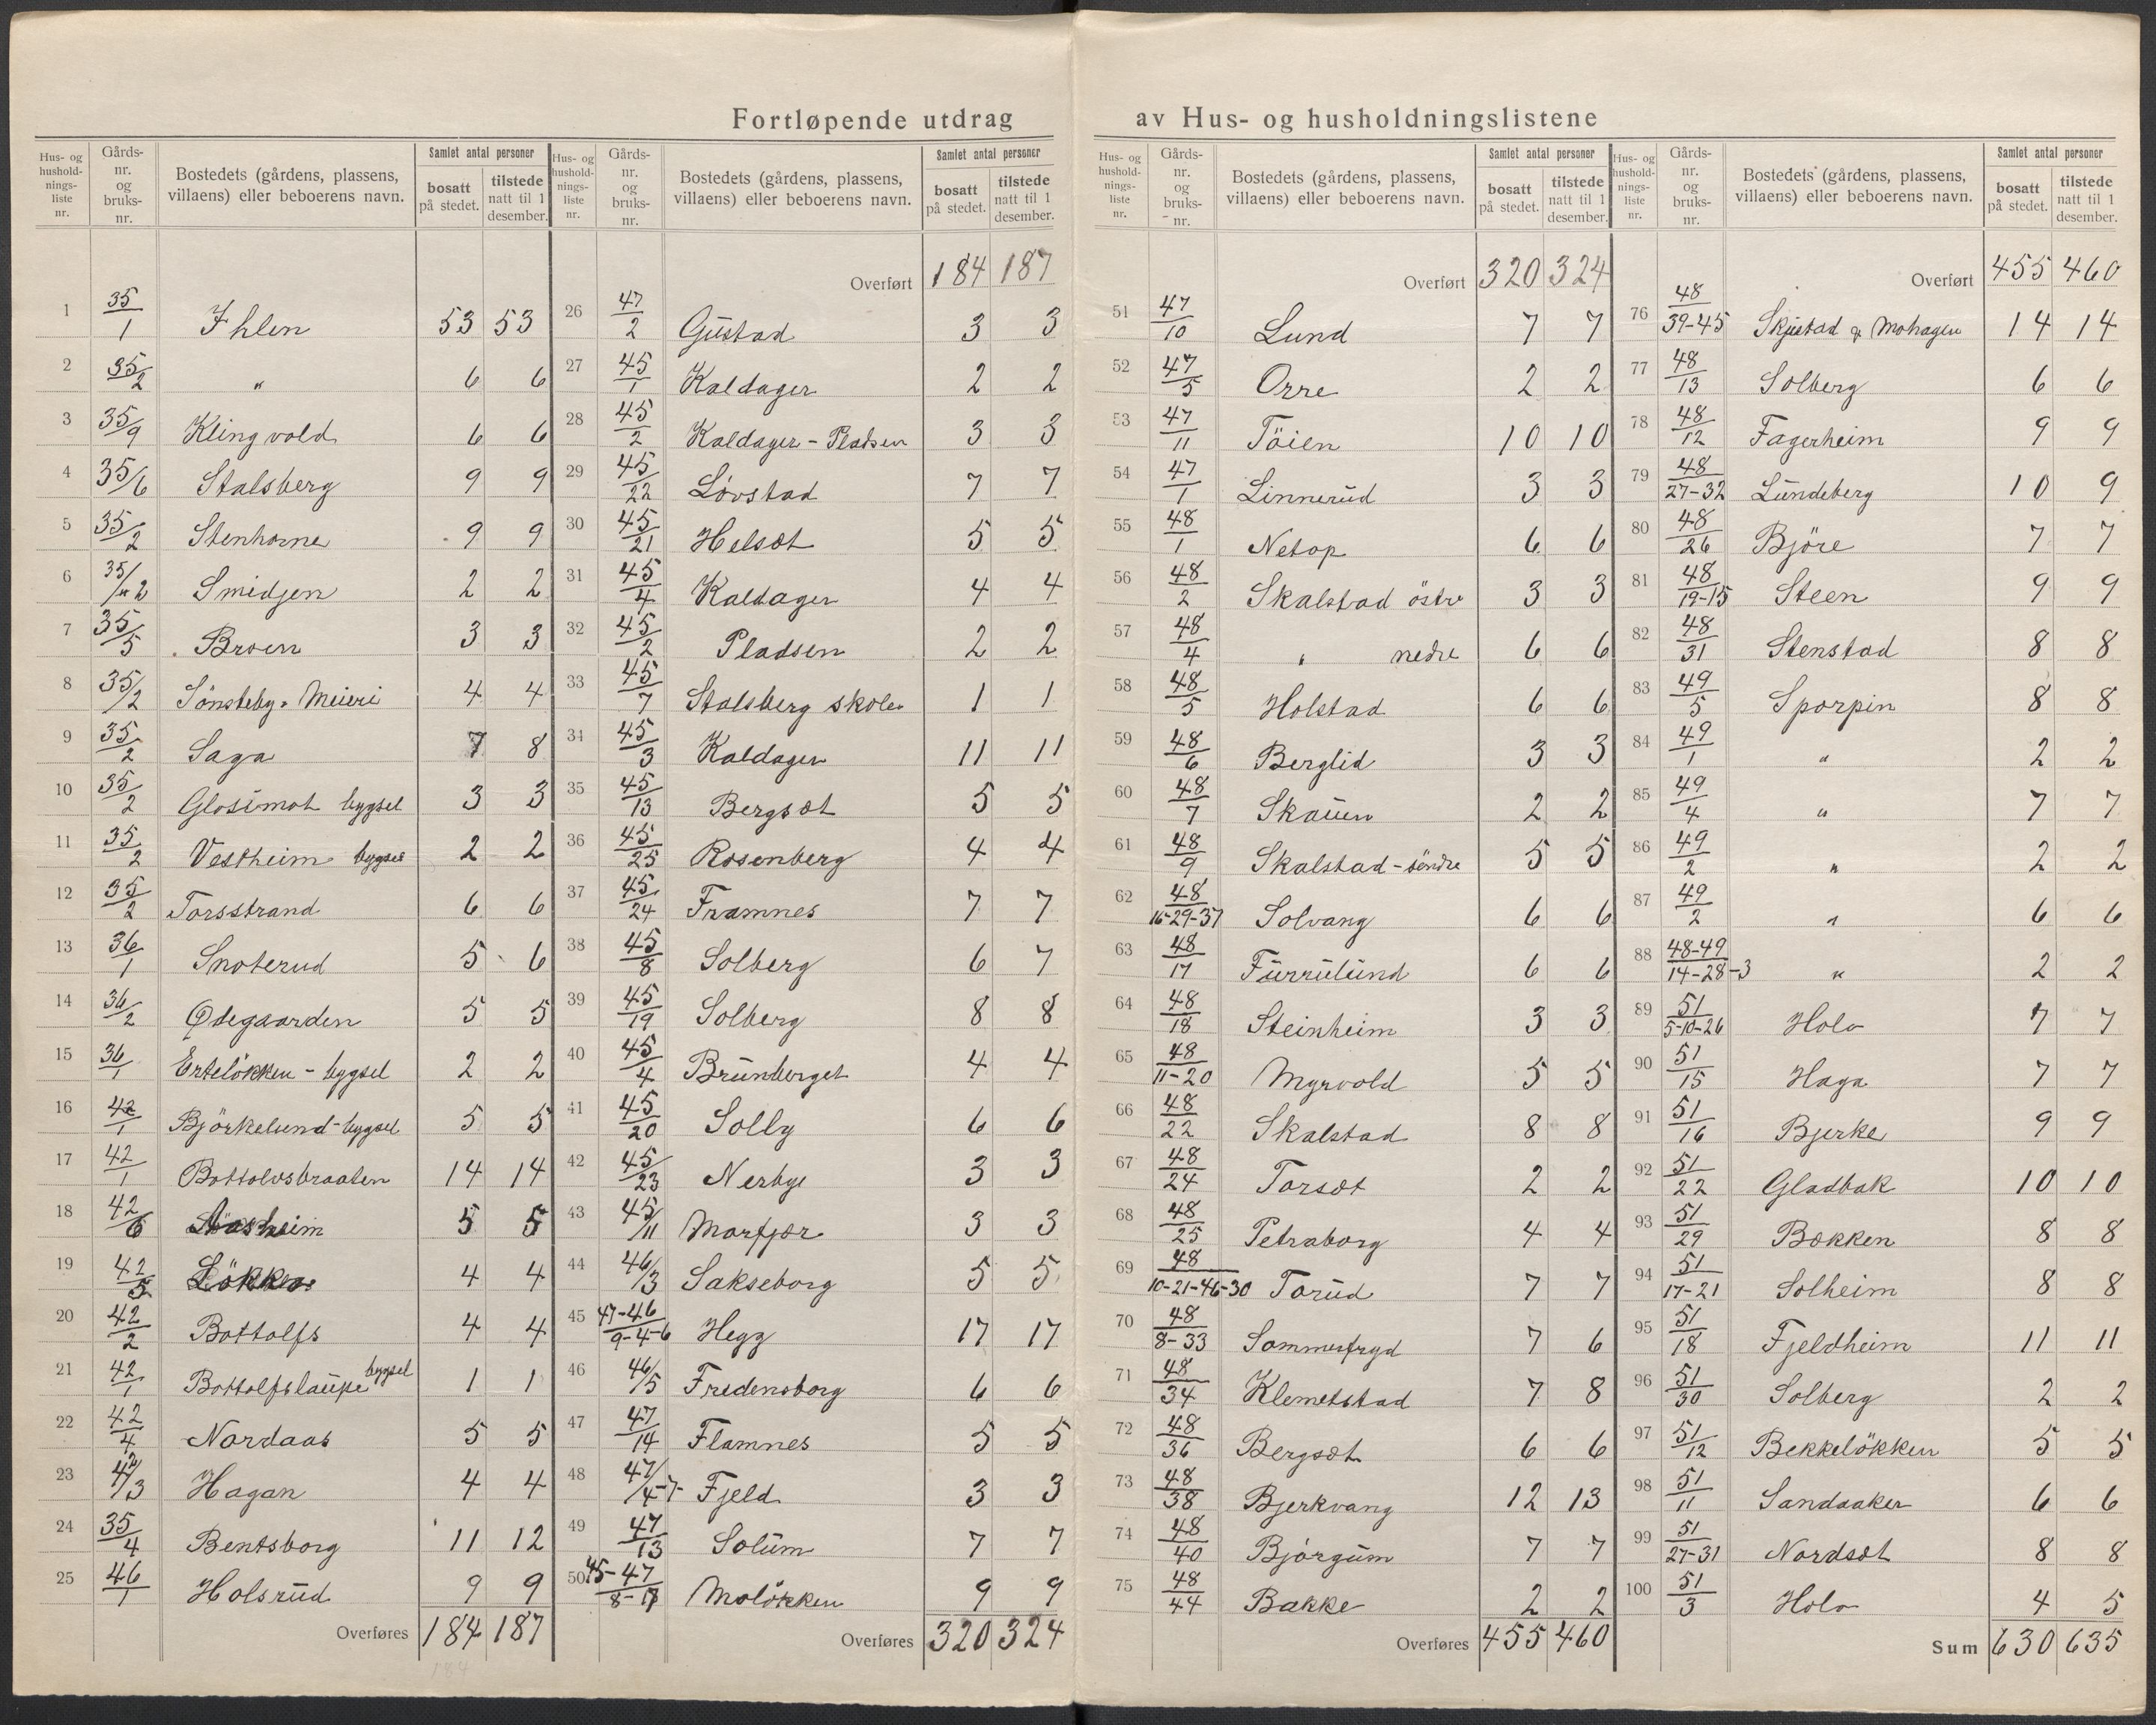 Fortløpende utdrag av Hus- og husholdningslistene
Hus- og husholdningsliste nr. | Gårdsnr. og bruksnr. | Bostedets (gårdens, plassens, villaens) eller beboerens navn. | Samlet antal personer: bosatt på stedet. | tilstede natt til 1 desember.
1 35/1 Ihlen 53 53
2 35/2 " 6 6
3 35/9 Klingvold 6 6
4 35/6 Stalsberg 9 9
5 35/2 Stenhorne 9 9
6 35/"2 Smidjen 2 2
7 35/5 Broen 3 3
8 35/2 Sönsteby. Meieri 4 4
9 35/2 Saga 7 8
10 35/2 Glosimot bygsel 3 3
11 35/2 Vestheim bygsel 2 2
12 35/2 Torsstrand 6 6
13 36/1 Snoterud 5 6
14 36/2 Ødegaarden 5 5
15 36/1 Erteløkken - bygsel 2 2
16 42/1 Björkelund - bygsel 5 5
17 42/1 Bottolvsbraaten 14 14
18 42/6 Aasheim 5 5
19 42/5 Lökken 4 4
20 42/2 Bottolfs 4 4
21 42/1 Bottolfslaupe bygsel 1 1
22 42/4 Nordaas 5 5
23 42/3 Hagan 4 4
24 35/4 Bentsborg 11 12
25 46/1 Holsrud 9 9
Overføres 184 187
184
Hus- og husholdningsliste nr. | Gårdsnr. og bruksnr. | Bostedets (gårdens, plassens, villaens) eller beboerens navn. | Samlet antal personer: bosatt på stedet. | tilstede natt til 1 desember.
Overført 184 187
26 47/2 Gustad 3 3
27 45/1 Kaldager 2 2
28 45/2 Kaldager - Pladsen 3 3
29 45/22 Lövstad 7 7
30 45/21 Helsæt 5 5
31 45/4 Kaldager 4 4
32 45/2 Pladsen 2 2
33 45/7 Stalsberg skole 1 1
34 45/3 Kaldager 11 11
35 45/13 Bergsæt 5 5
36 45/25 Rosenberg 4 4
37 45/24 Framnes 7 7
38 45/8 Solberg 6 7
39 45/19 Solberg 8 8
40 45/4 Brunberget 4 4
41 45/20 Solby 6 6
42 45/23 Nerbye 3 3
43 45/11 Marfjær 3 3
44 46/3 Sakseborg 5 5
45 47-46/9-4-6 Hegg 17 17
46 46/5 Fredensborg 6 6
47 47/14 Flamnes 5 5
48 47/4-7 Fjeld 3 3
49 47/13 Solum 7 7
50 45-47/8-17 Molökken 9 9
Overføres 320 324
Hus- og husholdningsliste nr. | Gårdsnr. og bruksnr. | Bostedets (gårdens, plassens, villaens) eller beboerens navn. | Samlet antal personer: bosatt på stedet. | tilstede natt til 1 desember.
Overført 320 324
51 47/10 Lund 7 7
52 47/5 Orre 2 2
53 47/11 Töien 10 10
54 47/1 Linnerud 3 3
55 48/1 Netop 6 6
56 48/2 Skalstad östre 3 3
57 48/4 " nedre 6 6
58 48/5 Holstad 6 6
59 48/6 Berglid 3 3
60 48/7 Skauen 2 2
61 48/9 Skalstad - söndre 5 5
62 48/16-29-37 Solvang 6 6
63 48/17 Furrulund 6 6
64 48/18 Steinheim 3 3
65 48/11-20 Myrvold 5 5
66 48/22 Skalstad 8 8
67 48/24 Torsæt 2 2
68 48/25 Petraborg 4 4
69 48/10-21-46-30 Torud 7 7
70 48/8-33 Sommerfryd 7 6
71 48/34 Klemetstad 7 8
72 48/36 Bergsæt 6 6
73 48/38 Bjerkvang 12 13
74 48/40 Bjorgum 7 7
75 48/44 Bakke 2 2
Overføres 455 460
Hus- og husholdningsliste nr. | Gårdsnr. og bruksnr. | Bostedets (gårdens, plassens, villaens) eller beboerens navn. | Samlet antal personer: bosatt på stedet. | tilstede natt til 1 desember.
Overført 455 460
76 48/39-45 Skjustad & Mohagen 14 14
77 48/13 Solberg 6 6
78 48/12 Fagerheim 9 9
79 48/27-32 Lundeberg 10 9
80 48/26 Björe 7 7
81 48/19-15 Steen 9 9
82 48/31 Stenstad 8 8
83 49/5 Sporpin 8 8
84 49/1 " 2 2
85 49/4 " 7 7
86 49/2 " 2 2
87 49/2 " 6 6
88 48-49/14-28-3 " 2 2
89 51/5-10-26 Holo 7 7
90 51/15 Haga 7 7
91 51/16 Bjerke 9 9
92 51/22 Gladbak 10 10
93 51/29 Bækken 8 8
94 51/17-21 Solheim 8 8
95 51/18 Fjeldheim 11 11
96 51/30 Solberg 2 2
97 51/12 Bekkelökken 5 5
98 51/11 Sandaaker 6 6
99 51/27-31 Nordsæt 8 8
100 51/3 Holo 4 5
Sum 630 635